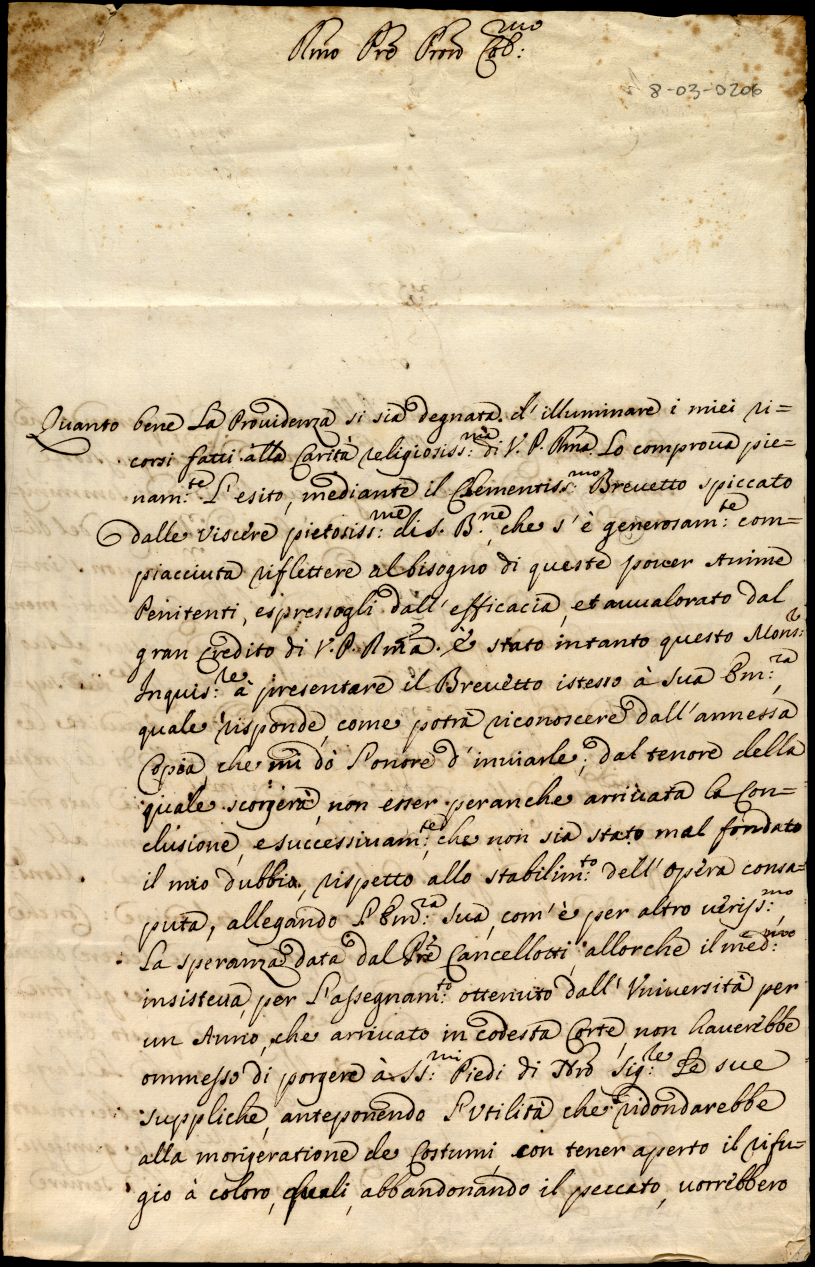 Rmo Pre Pron Col:mo
8-03-0206
Quanto bene La Prouidenza si sia degnata d'illuminare i miei ri=
corsi fatti alla Carità religiosiss:ma di V. P. Rma Lo comproua pie=
nam:te L'esito, mediante il Clementiss:mo Breuetto spiccato
dalle viscere pietosiss:me di S. B.ne, che s'è generosam:te com=
piacciuta riflettere al bisogno di queste pouer Anime
Penitenti, espressogli dall'efficacia, et auualorato dal
gran Credito di V. P. Rma. È stato intanto questo Mons:r
Inquis:re à presentare il Breuetto istesso à Sua Em:za,
quale risponde, come potrà riconoscere dall'annessa
Copia, che mi dò l'onore d'inuiarle; dal tenore della
quale scorgerà, non esser peranche arriuata la Con=
clusione, e successiuam:te, che non sia stato mal fondato
il mio dubbio, rispetto allo stabilim:to dell'opera consa=
puta, allegando L'Em:za Sua, com'è per altro veriss:mo,
La speranza data dal Pre Cancellotti, allorche il med:mo
insisteua, per L'assegnam:to ottenuto dall'Vniuersità per
un Anno, che arriuato in codesta Corte, non hauerebbe
ommesso di porgere à SS:mi Piedi di Nro Sig:re Le sue
suppliche, anteponendo L'vtilità che ridondarebbe
alla morigeratione de Costumi, con tener aperto il rifu=
gio à coloro, quali, abbandonando il peccato, vorrebbero